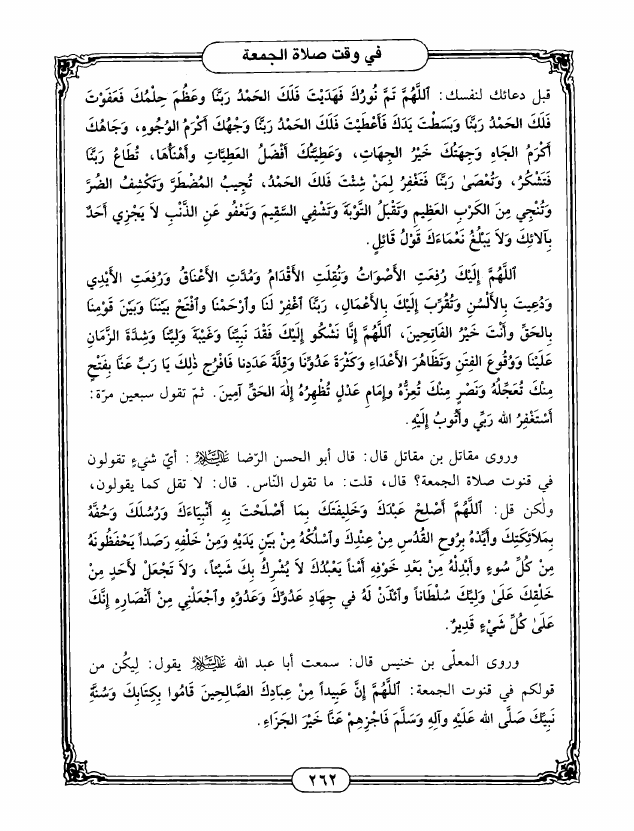 في وقت صلاة الجمعة
قبل دعائك لنفسك: ٱللَّهُمَّ تَمَّ نُورُكَ فَهَدَيْتَ فَلَكَ الحَمْدُ رَبَّنَا وعَظُمَ حِلْمُكَ فَعَفَوْتَ
فَلَكَ الحَمْدُ رَبَّنَا وَبَسَطْتَ يَدَكَ فَأَعْطَيْتَ فَلَكَ الحَمْدُ رَبَّنَا وَجْهُكَ أَكْرَمُ الوُجُوهِ، وَجَاهُكَ
أَكْرَمُ الجَاهِ وَجِهَتُكَ خَيْرُ الجِهَاتِ، وَعَطِيَّتُكَ أَفْضَلُ العَطِيَّاتِ وأَهْنَأُهَا، تُطَاعُ رَبَّنَا
فَتَشْكُرُ، وَتُعْصَىٰ رَبَّنَا فَتَغْفِرُ لِمَنْ شِئْتَ فَلَكَ الحَمْدُ، تُجِيبُ المُضْطَرَّ وَتَكْشِفُ الضُّرَّ
وَتُنْجِي مِنَ الكَرْبِ العَظِيمِ وَتَقْبَلُ التَّوْبَةَ وَتَشْفِي السَّقِيمَ وَتَعْفُو عَنِ الذَّنْبِ لاَ يَجْزِي أَحَدٌ
بِآلائِكَ وَلاَ يَبْلُغُ نَعْمَاءَكَ قَوْلُ قَائِلٍ.
ٱللَّهُمَّ إِلَيْكَ رُفِعَتِ الأَصْوَاتُ وَنُقِلَتِ الأَقْدَامُ وَمُدَّتِ الأَعْنَاقُ وَرُفِعَتِ الأَيْدِي
وَدُعِيتَ بِالأَلْسُنِ وَتُقُرِّبَ إِلَيْكَ بِالأَعْمَالِ، رَبَّنَا ٱغْفِرْ لَنَا وٱرْحَمْنَا وٱفْتَحْ بَيْنَنَا وَبَيْنَ قَوْمِنَا
بِالحَقِّ وأَنْتَ خَيْرُ الفَاتِحِينَ، ٱللَّهُمَّ إِنَّا نَشْكُو إِلَيْكَ فَقْدَ نَبِيِّنَا وَغَيْبَةَ وَلِيِّنَا وَشِدَّةَ الزَّمَانِ
عَلَيْنَا وَوُقُوعَ الفِتَنِ وَتَظَاهُرَ الأَعْدَاءِ وَكَثْرَةَ عَدُوِّنَا وَقِلَّةَ عَدَدِنا فَافْرُجْ ذٰلِكَ يَا رَبِّ عَنَّا بِفَتْحٍ
مِنْكَ تُعَجِّلُهُ وَنَصْرٍ مِنْكَ تُعِزُّهُ وإِمَامِ عَدْلٍ تُظْهِرُهُ إِلٰهَ الحَقِّ آمِينَ. ثمّ تقول سبعين مرّة:
أَسْتَغْفِرُ الله رَبِّي وأَتُوبُ إِلَيْهِ.
وروى مقاتل بن مقاتل قال: قال أبو الحسن الرّضا عَلَيْهِ السَّلَامُ: أيّ شيءٍ تقولون
في قنوت صلاة الجمعة؟ قال، قلت: ما تقول النّاس. قال: لا تقل كما يقولون،
ولٰكن قل: ٱللَّهُمَّ أَصْلِحْ عَبْدَكَ وَخَلِيفَتَكَ بِمَا أَصْلَحْتَ بِهِ أَنْبِيَاءَكَ وَرُسُلَكَ وَحُفَّهُ
بِمَلاَئِكَتِكَ وأَيِّدْهُ بِرُوحِ القُدُسِ مِنْ عِنْدِكَ وٱسْلُكْهُ مِنْ بَيْنِ يَدَيْهِ وَمِنْ خَلْفِهِ رَصَداً يَحْفَظُونَهُ
مِنْ كُلِّ سُوءٍ وأَبْدِلْهُ مِنْ بَعْدِ خَوْفِهِ أَمْناً يَعْبُدُكَ لاَ يُشْرِكُ بِكَ شَيْئاً، وَلاَ تَجْعَلْ لأَحَدٍ مِنْ
خَلْقِكَ عَلَىٰ وَلِيِّكَ سُلْطَاناً وٱئْذَنْ لَهُ في جِهَادِ عَدُوِّكَ وَعَدُوِّهِ وٱجْعَلْنِي مِنْ أَنْصَارِهِ إِنَّكَ
عَلَىٰ كُلِّ شَيْءٍ قَدِيرٌ.
وروى المعلّى بن خنيس قال: سمعت أبا عبد الله عَلَيْهِ السَّلَامُ يقول: لِيكُن من
قولكم في قنوت الجمعة: ٱللَّهُمَّ إِنَّ عَبِيداً مِنْ عِبَادِكَ الصَّالِحِينَ قَامُوا بِكِتَابِكَ وَسُنَّةِ
نَبِيِّكَ صَلَّى الله عَلَيْهِ وآلِهِ وَسَلَّمَ فَاجْزِهِمْ عَنَّا خَيْرَ الجَزَاءِ.
٢٦٢